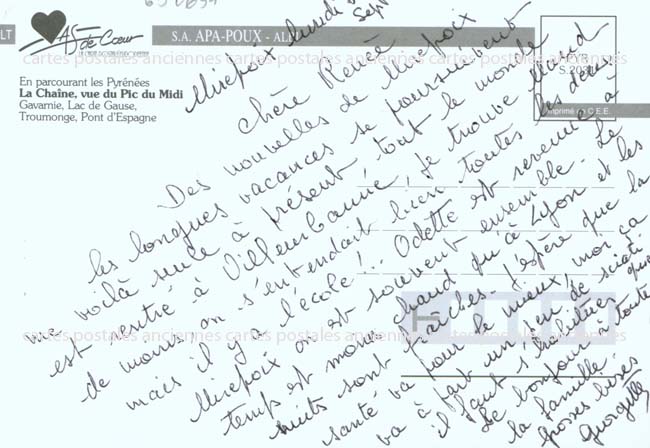 As de Cœur
S.A. APA-POUX - ALBI
En parcourant les Pyrénées
La Chaîne, vue du Pic du Midi
Gavarnie, Lac de Gause,
Troumonge, Pont d'Espagne
PYR
Imprimé in C.E.E.
cartes postales anciennes cartes postales anciennes cartes postales anciennes
Mirepoix lundi
Sept
Chère Renée
Des nouvelles de Mirepoix
les longues vacances se poursuivent
me voilà seule à présent, tout le monde
est rentré à Villeurbanne, je trouve
de moins, on s'entendait bien toutes les deux
mais il y a l'école!.. Odette est revenue à
Mirepoix on est souvent ensemble. Le
temps est moins chaud qu'à Lyon et les
nuits sont fraîches. J'espère que la
santé va pour le mieux, moi ça
va à part un peu de sciatique
il faut s'habituer
Le bonjour à toute
la famille.
grosses bises
Georgette
cartes postales anciennes cartes postales anciennes cartes postales anciennes